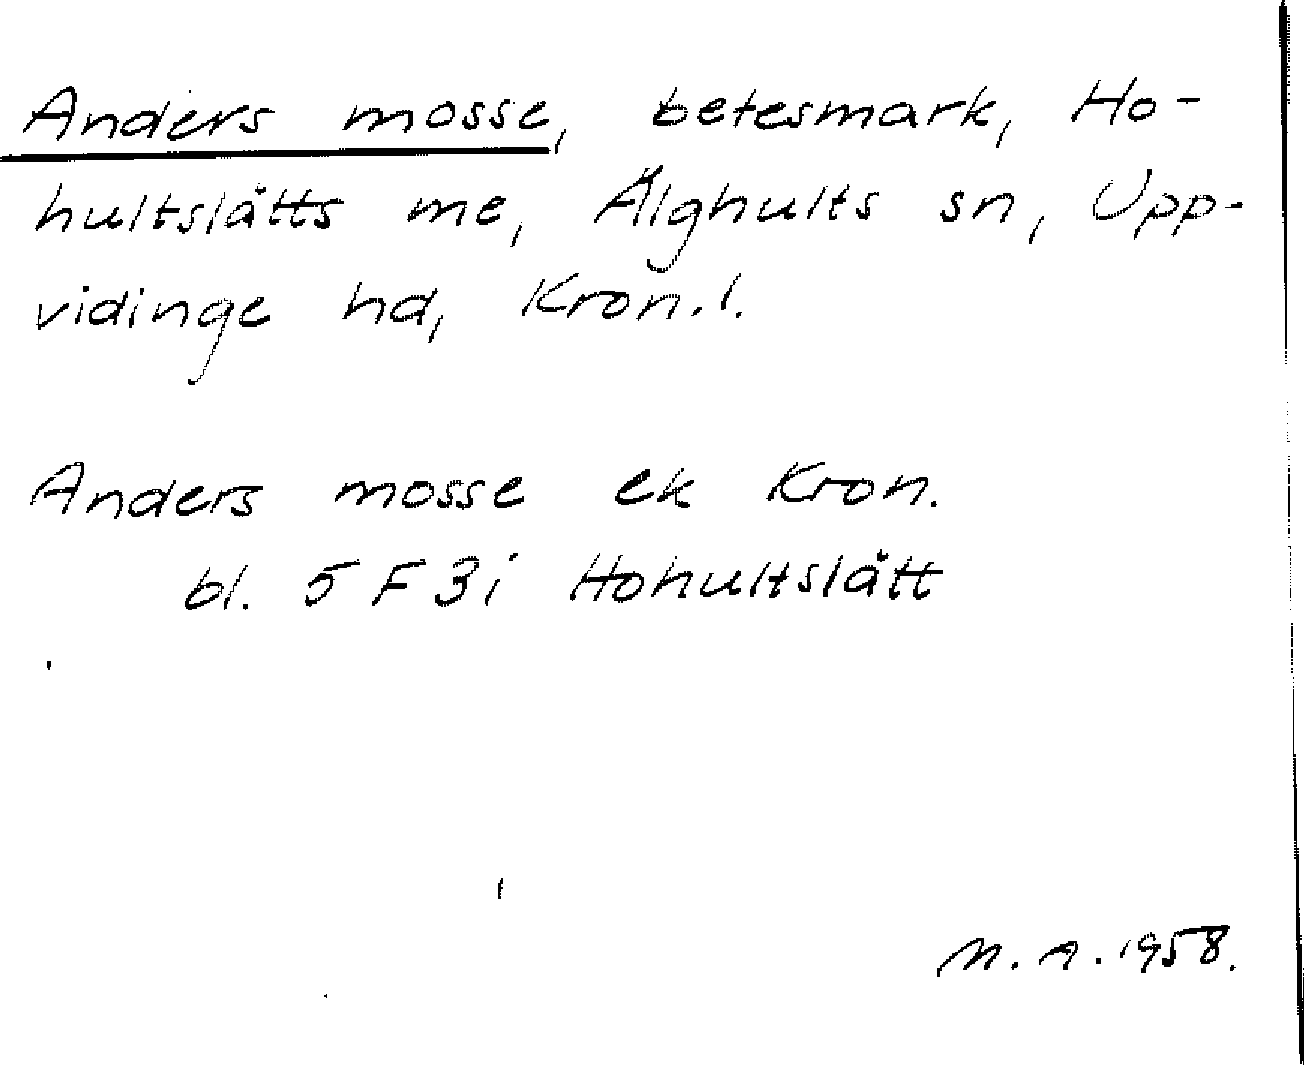 Anders mosse, betesmark, Ho-
hultslätts me, Älghults sn, Upp-
vidinge hd, Kron. l.
Anders mosse ek Kron.
bl. 5 F 3 i Hohultslätt
M. A. 1958.